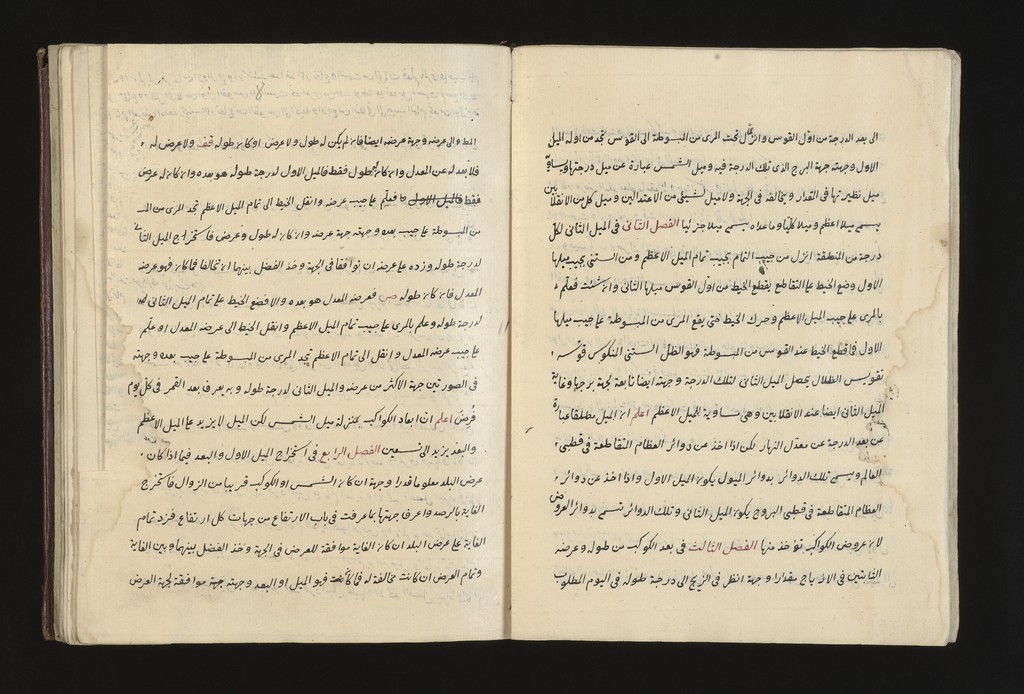 الى بعد الدرجة من اول القوس وانزل تحت المرى من المبسوطة الى القوس تجد من اوله الميل
الاول وجهته جهة البرج الذى تلك الدرجة فيه وميل الشمس عبارة عن ميل درجتها ويساوى
ميل نظيرتها فى المقدار ويخالفه فى الجهة ولا ميل لشيئى من الاعتدالين وميل كل من الانقلابين
يسمى ميلا اعظم وميلا كليا وما عداه يسمى ميلا جزئيا الفصل الثانى فى الميل الثانى لكل
درجة من المنطقة انزل من جيب التمام بجيب تمام الميل الاعظم ومن الستينى بجيب ميلها
الاول وضع الخيط على التقاطع يقطع الخيط من اول القوس ميلها الثانى وان شئت فعلّم
بالمرى على جيب الميل الاعظم وحرك الخيط حتى يقع المرى من المبسوطة على جيب ميلها
الاول فما قطع الخيط عند القوس من المبسوطة فهو الظل الستينى المنكوس قوسه
تقويس الظلال يحصل الميل الثانى لتلك الدرجة وجهته ايضا تابعة لجهة برجها وغاية
الميل الثانى ايضا عند الانقلابين وهى مساوية للميل الاعظم اعلم ان الميل مطلقا عبارة
عن بعد الدرجة عن معدل النهار لكن اذا اخذ عن دوائر العظام المتقاطعة فى قطبى
العالم ويسمى تلك الدوائر بدوائر الميول يكون الميل الاول واذا اخذ عن دوائر
العظام المتقاطعة فى قطبى البروج يكون الميل الثانى وتلك الدوائر تسمى بدوائر العروض
لان عروض الكواكب تؤخذ منها الفصل الثالث فى بعد الكوكب من طوله وعرضه
الثابتين فى الازياج مقدارا وجهة انظر فى الزيج الى درجة طوله فى اليوم المطلوب
والى عرضه وجهة عرضه ايضا فان لم يكن له طول ولا عرض او كان طوله قف ولا عرض له
فلا بعد له عن المعدل وان كان له طول فقط فالميل الاول لدرجة طوله هو بعده وان كان له عرض
فقط فعلّم على جيب عرضه وانقل الخيط الى تمام الميل الاعظم تجد المرى من
من المبسوطة على جيب بعده وجهته جهة عرضه وان كان له طول وعرض فاستخراج الميل الثانى
لدرجة طوله وزده على عرضه ان توافقا فى الجهة وخذ الفضل بينهما ان تخالفا فما كان فهو عرضه
المعدل فان كان طوله ص فعرضه المعدل هو بعده والا فضع الخيط على تمام الميل الثانى
لدرجة طوله وعلم بالمرى على جيب تمام الميل الاعظم وانقل الخيط الى عرضه المعدل او علّم
على جيب عرضه المعدل وانقل الى تمام الاعظم تجد المرى من المبسوطة على جيب بعده وجهته
فى الصورتين جهة الاكثر من عرضه والميل الثانى لدرجة طوله وبه يعرف بعد القمر فى كل يوم
فُرِضَ اعلم ان ابعاد الكواكب بمنزلة ميل الشمس لكن الميل لا يزيد على الميل الاعظم
والبعد يزيد الى تسعين الفصل الرابع فى استخراج الميل الاول والبعد فيما اذا كان
عرض البلد معلوما قدرا وجهة ان كان الشمس او الكوكب قريبا من الزوال فاستخرج
الغاية بالرصد واعرف جهتها بما عرفت فى باب الارتفاع من جهات كل ارتفاع فزد تمام
الغاية على عرض البلد ان كان الغاية موافقة للعرض فى الجهة وخذ الفضل بينهما وبين الغاية
وتمام العرض ان كانت مخالفة له فما كان فهو الميل او البعد وجهته جهة موافقة لجهة العرض